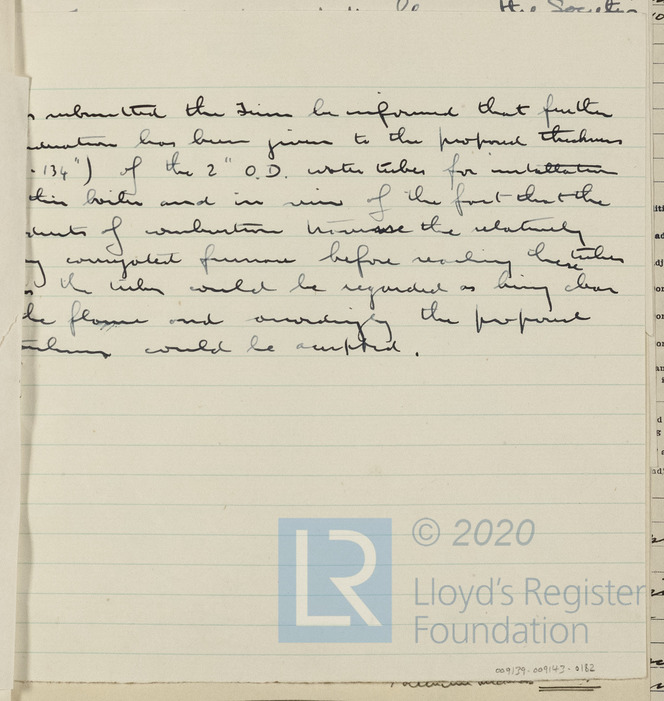 the Society
submitted the Firm be informed that further
has been given to the proposed thickness
.134") of the 2" O.D. water tubes for installation
this boiler and in view of the fact that the
products of combustion traverse the relatively
corrugated furnace before reaching these tubes
the tubes could be regarded as being clear
the flame and accordingly the proposed
could be accepted.
LR
© 2020
Lloyd's Register
Foundation
009139-009143-0182